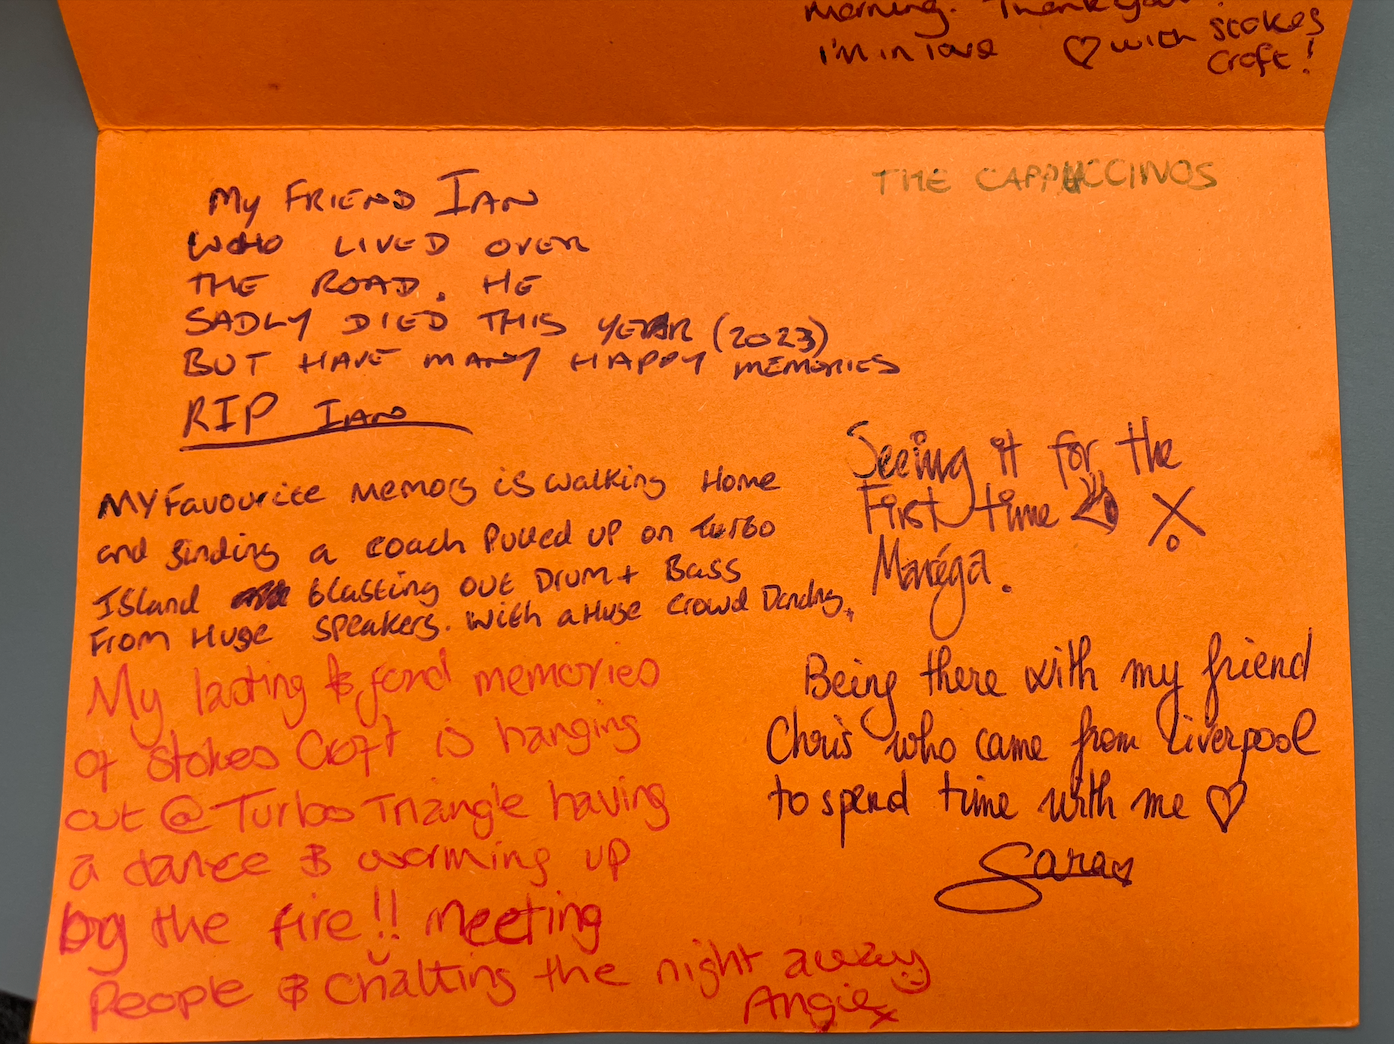 morning. Thank you!
I'm in love ♡ with Stokes
Croft!
THE CAPPUCCINOS
MY FRIEND IAN
WHO LIVED OVER
THE ROAD. HE
SADLY DIED THIS YEAR (2023)
BUT HAVE MANY HAPPY MEMORIES
RIP IAN
MY Favourite memory is walking Home
and finding a coach Pulled up on Turbo
Island blasting out Drum + Bass
From Huge speakers. With a Huge Crowd Dancing.
My lasting & fond memories
of Stokes Croft is hanging
out @ Turbo Triangle having
a dance & warming up
by the fire!! Meeting
People & chatting the night away
Angie x
Seeing it for the
First time
Maréga.
Being there with my friend
Chris who came from Liverpool
to spend time with me ♡
Sara